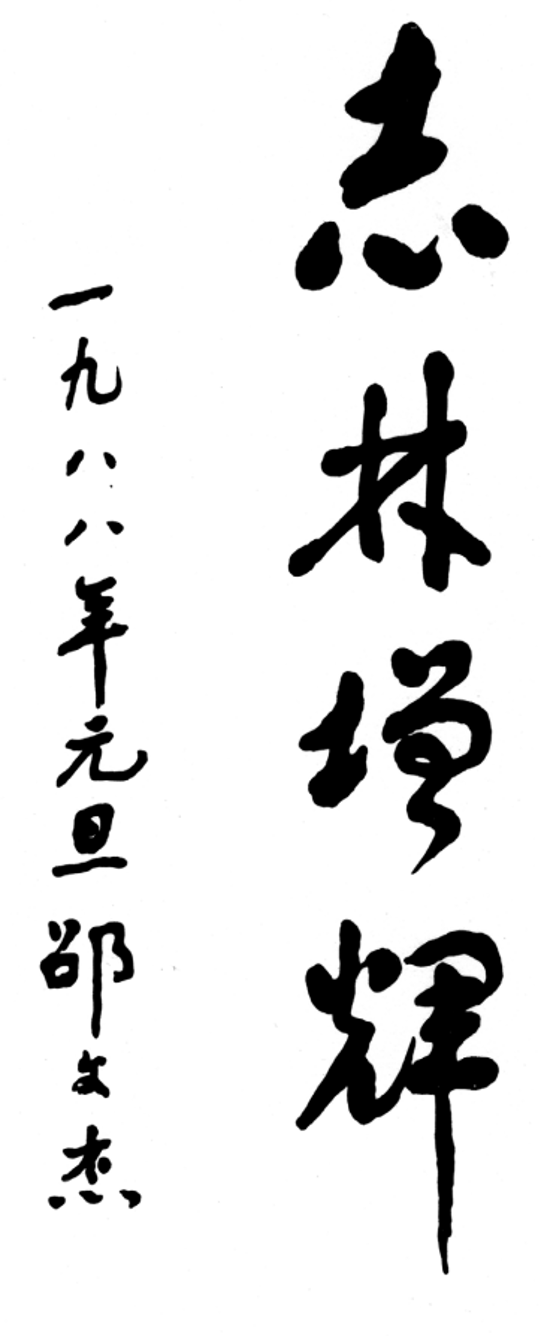 志林增辉
一九八八年元旦邵文杰